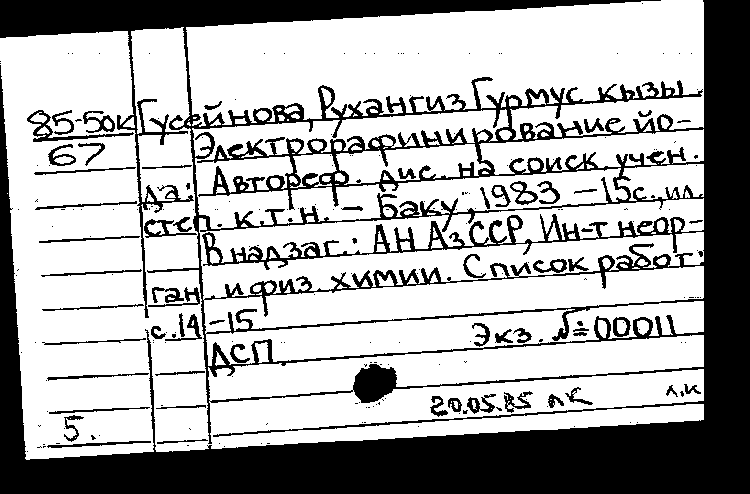 85-50к Гусейнова, Рухангиз Гурмус кызы.
67 Электрорафинирование йо-
да: Автореф. дис. на соиск. учен.
степ. к.т.н. – Баку, 1983 – 15 с., ил.
В надзаг.: АН АзССР, Ин-т неор-
ган. и физ. химии. Список работ:
с. 14-15
ДСП. Экз. №00011
20.05.85 лк л.к
5.